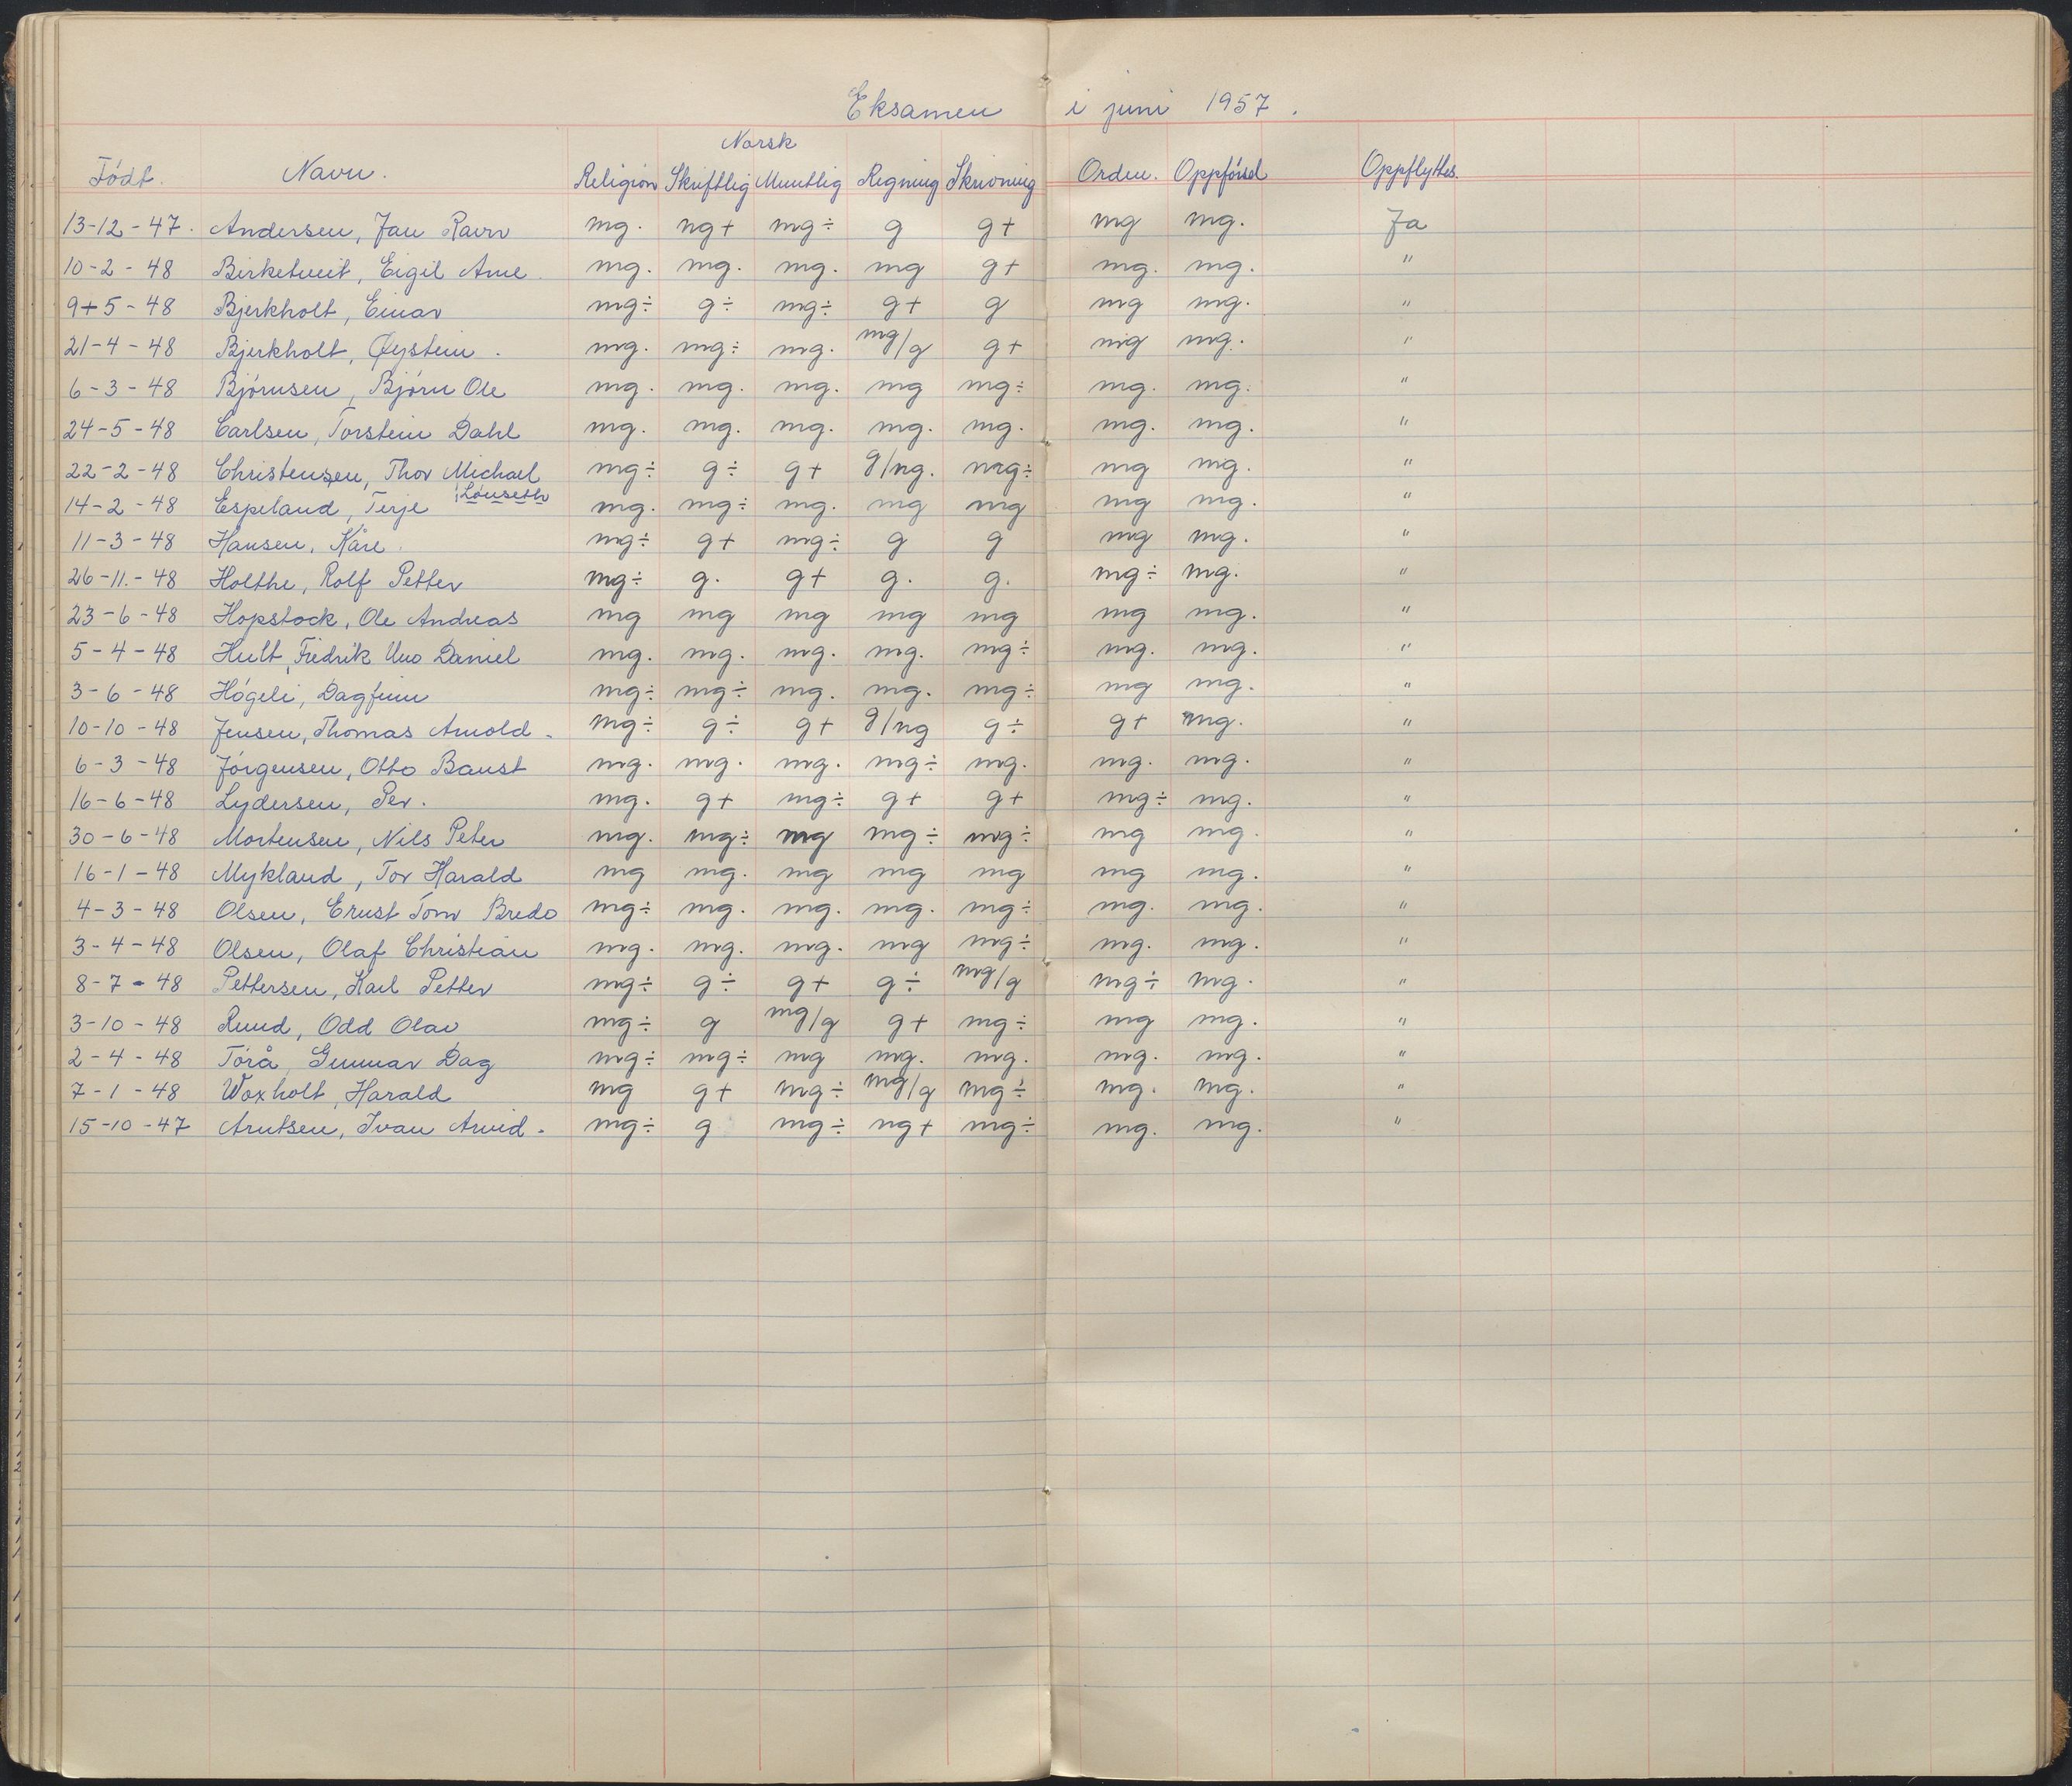 Eksamen i juni 1957.
Norsk
Født. Navn. Religion Skriftlig Muntlig Regning Skrivning Orden. Oppførsel Oppflyttes.
13-12-47. Andersen, Jan Ravn mg. ng+ mg÷ g g+ mg mg. Ja
10-2-48 Birketveit, Eigil Arne mg. mg. mg. mg g+ mg. mg. "
9+5-48 Bjerkholt, Einar mg÷ g÷ mg÷ g+ g mg mg. "
21-4-48 Bjerkholt, Øystein. mg. mg÷ mg. mg/g g+ mg mg. "
6-3-48 Bjørnsen, Bjørn Ole mg. mg. mg. mg mg÷ mg. mg. "
24-5-48 Carlsen, Torstein Dahl mg. mg. mg. mg. mg. mg. mg. "
22-2-48 Christensen, Thor Michael mg÷ g÷ g+ g/ng. mg÷ mg mg. "
14-2-48 Espeland, Terje Lønseth mg. mg÷ mg. mg mg mg mg. "
11-3-48 Hansen, Kåre. mg÷ g+ mg÷ g g mg mg. "
26-11.-48 Holthe, Rolf Petter mg÷ g. g+ g. g. mg÷ mg. "
23-6-48 Hopstock, Ole Andreas mg mg mg mg mg mg mg. "
5-4-48 Hult, Fredrik Uno Daniel mg. mg. mg. mg. mg÷ mg. mg. "
3-6-48 Høgeli, Dagfinn mg÷ mg÷ mg. mg. mg÷ mg mg. "
10-10-48 Jensen, Thomas Arnold. mg÷ g÷ g+ g/ng g÷ g+ mg. "
6-3-48 Jørgensen, Otto Baust mg. mg. mg. mg÷ mg. mg. mg. "
16-6-48 Lydersen, Per. mg. g+ mg÷ g+ g+ mg÷ mg. "
30-6-48 Mortensen, Nils Peter mg. mg÷ mg mg÷ mg÷ mg mg. "
16-1-48 Mykland, Tor Harald mg mg. mg mg mg mg mg. "
4-3-48 Olsen, Ernst Tom Bredo mg÷ mg. mg. mg. mg÷ mg. mg. "
3-4-48 Olsen, Olaf Christian mg. mg. mg. mg mg÷ mg. mg. "
8-7-48 Pettersen, Karl Petter mg÷ g÷ g+ g÷ mg/g mg÷ mg. "
3-10-48 Ruud, Odd Olav mg÷ g mg/g g+ mg÷ mg mg. "
2-4-48 Tørå, Gunnar Dag mg÷ mg÷ mg mg. mg. mg. mg. "
7-1-48 Woxholt, Harald mg g+ mg÷ mg/g mg÷ mg. mg. "
15-10-47 Arntsen, Ivan Arvid. mg÷ g mg÷ ng+ mg÷ mg. mg. "